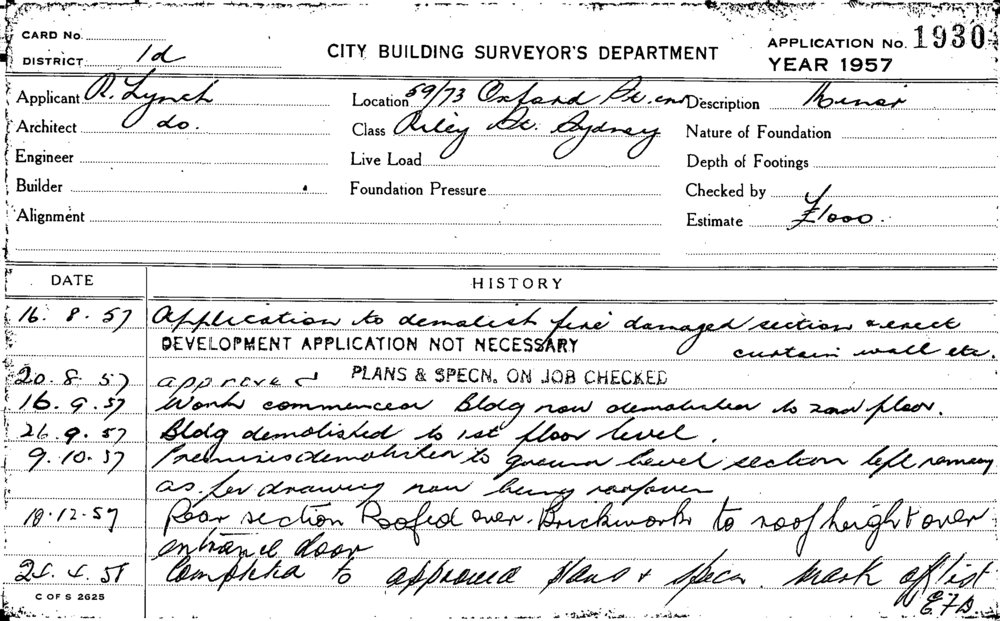 CARD No.
DISTRICT 1d
CITY BUILDING SURVEYOR'S DEPARTMENT
APPLICATION No. 1930
YEAR 1957
Applicant R. Lynch
Location 59/73 Oxford St. cnr
Description Minor
Architect do.
Class Riley St. Sydney
Nature of Foundation
Engineer
Live Load
Depth of Footings
Builder
Foundation Pressure
Checked by
Alignment
Estimate £1000.
DATE HISTORY
16. 8. 57 Application to demolish fire damaged section & erect
DEVELOPMENT APPLICATION NOT NECESSARY curtain wall etc.
20. 8. 57 approved PLANS & SPECN. ON JOB CHECKED
16. 9. 57 Work commenced Bldg now demolished to 2nd floor.
26. 9. 57 Bldg demolished to 1st floor level.
9. 10. 57 Premises demolished to ground level section left
as per drawing now being
18. 12. 57 Rear section Roofed over. Brickwork to roof height over
entrance door
24. 4. 58 Completed to approved plans & specn. Mark off list
C OF S 2625 E.F.D.